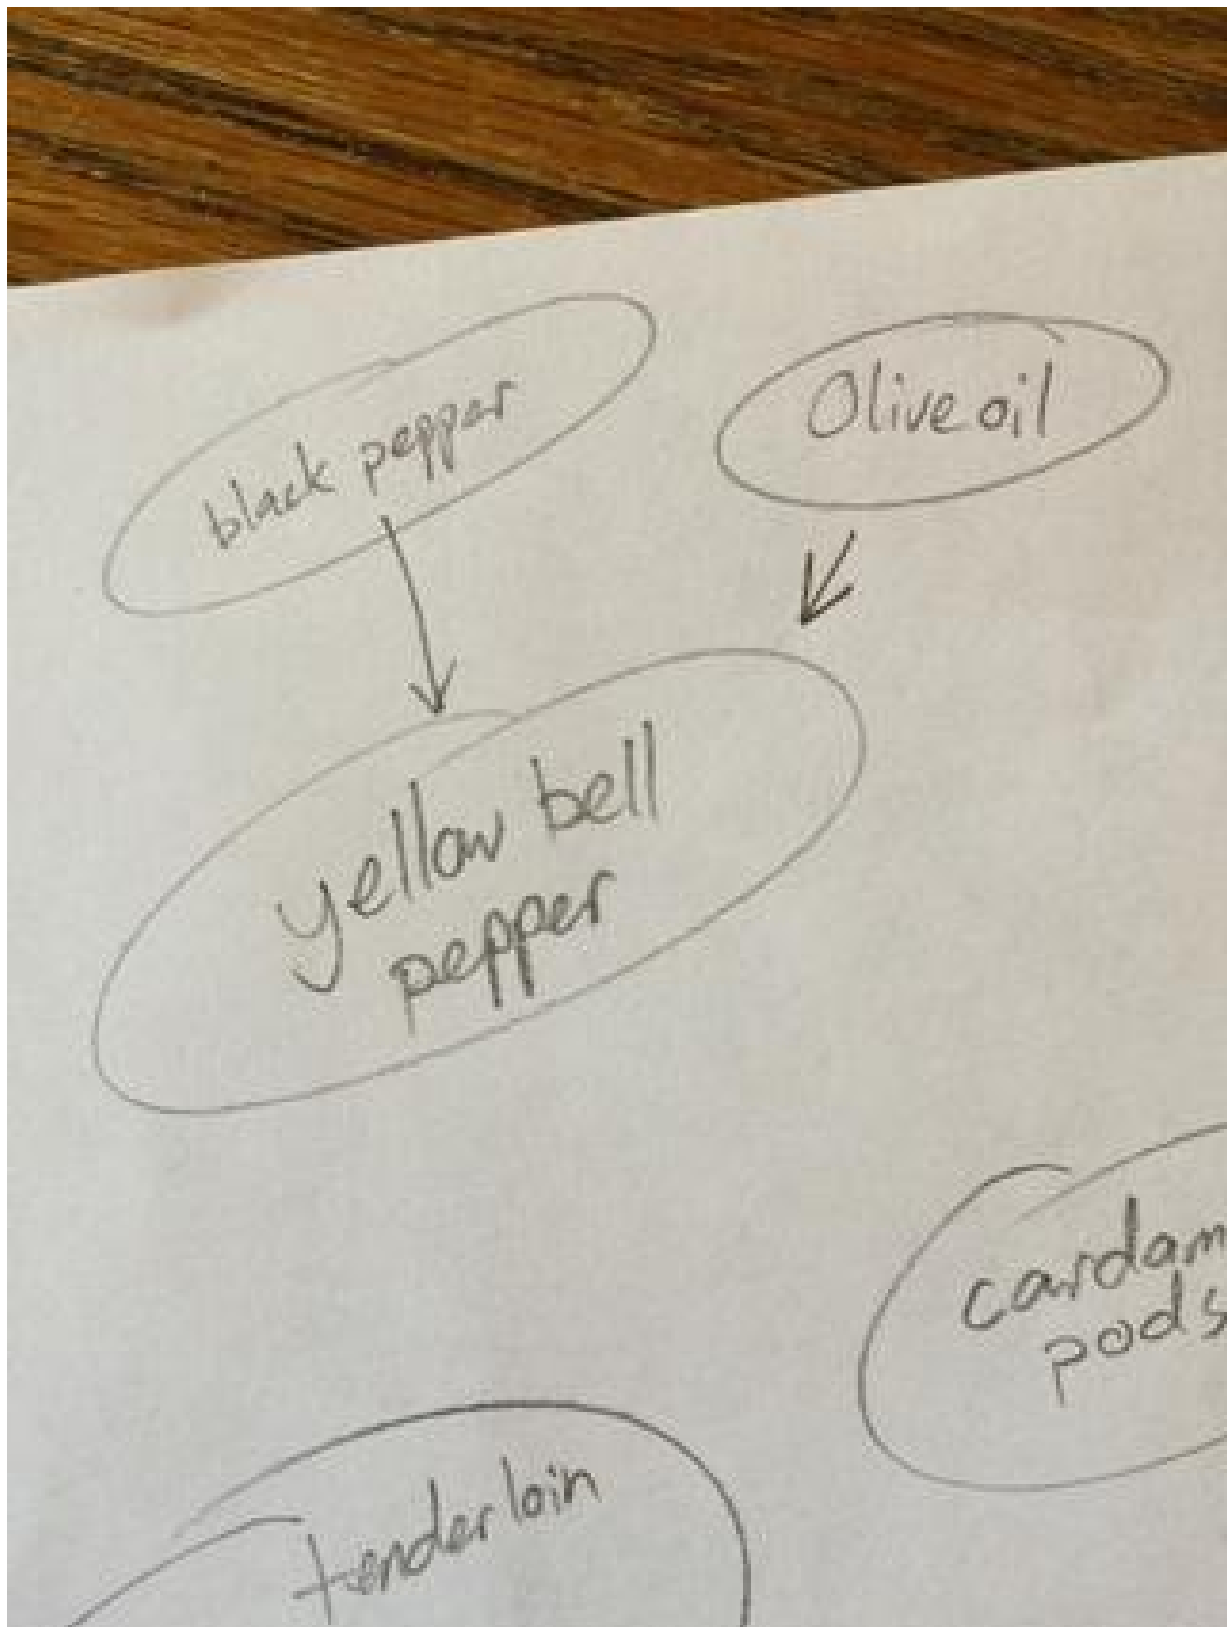 black pepper
Olive oil
yellow bell
pepper
cardam
pods
tenderloin